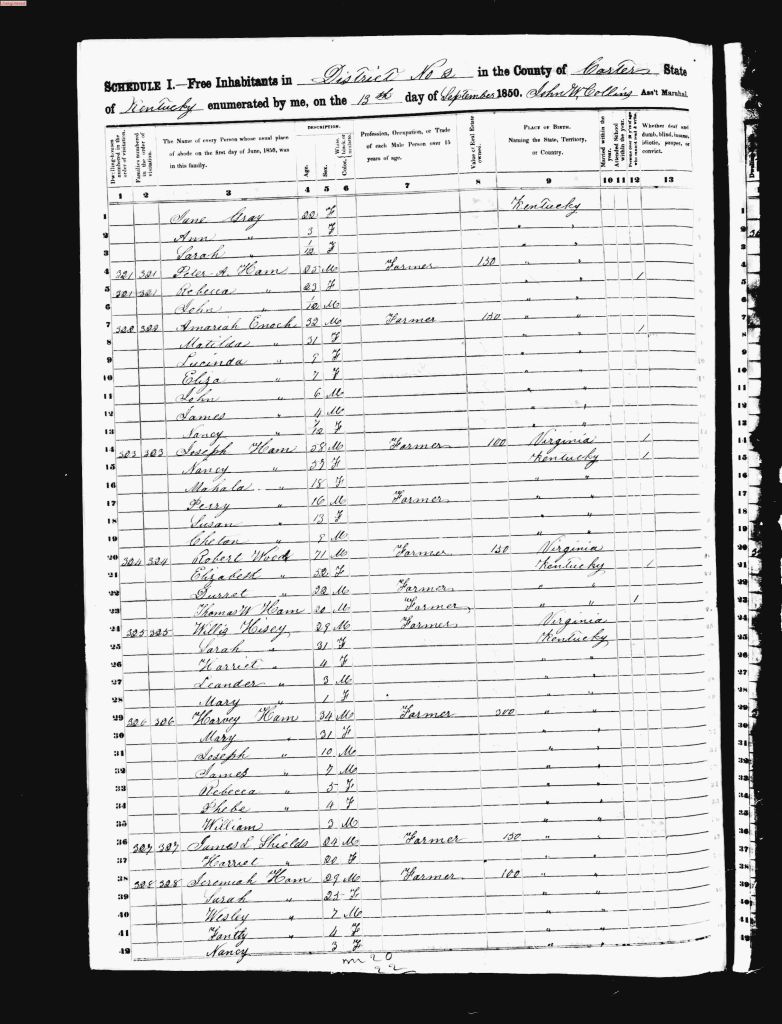 SCHEDULE I.—Free Inhabitants in District No 2 in the County of Carter State
of Kentucky enumerated by me, on the 13th day of September 1850. John W. Collins Ass't Marshal
Dwelling-houses numbered in the order of visitation.
Families numbered in the order of visitation.
The Name of every Person whose usual place of abode on the first day of June, 1850, was in this family.
DESCRIPTION.
Age.
Sex.
Color,
Profession, Occupation, or Trade of each Male Person over 15 years of age.
Value of Real Estate owned.
PLACE OF BIRTH.
Naming the State, Territory, or Country.
Married within the year.
Attended School within the year.
Whether deaf and dumb, blind, insane, idiotic, pauper, or convict.
1 2 3 4 5 6 7 8 9 10 11 12 13
1 Jane Gray 22 F Kentucky
2 Ann " 3 F " "
3 Sarah " /12 F " "
4 321 321 Peter A. Ham 25 M Farmer 150 " "
5 321 321 Rebecca " 23 F " " 1
6 John " /12 M " "
7 322 322 Amariah Enoch 32 M Farmer 150 " "
8 Matilda " 31 F " " 1
9 Lucinda " 9 F " "
10 Eliza " 7 F " "
11 John " 6 M " "
12 James " 4 M " "
13 Nancy " /12 F " "
14 323 323 Joseph Ham 58 M Farmer 100 Virginia 1
15 Nancy " 57 F Kentucky 1
16 Mahala " 18 F " "
17 Perry " 16 M Farmer " "
18 Susan " 13 F " "
19 " 9 M " "
20 324 324 Robert Wood 71 M Farmer 150 Virginia
21 Elizabeth " 52 F Kentucky 1
22 " 22 M Farmer " "
23 Thomas W Ham 20 M Farmer " " 1
24 325 325 Willis Hisey 29 M Farmer Virginia
25 Sarah " 31 F Kentucky
26 Harriet " 4 F " "
27 Leander " 3 M " "
28 Mary " 1 F " "
29 326 326 Harvey Ham 34 M Farmer 300 " "
30 Mary " 31 F " "
31 Joseph " 10 M " "
32 James " 7 M " "
33 Rebecca " 5 F " "
34 Phebe " 4 F " "
35 William 3 M " "
36 327 327 James L Shields 24 M Farmer 150 " "
37 Harriet " 20 F " "
38 328 328 Jeremiah Ham 29 M Farmer 100 " "
39 Sarah " 25 F " "
40 Wesley " 7 M " "
41 " 4 F " "
42 Nancy " 3 F " "
m 20
22